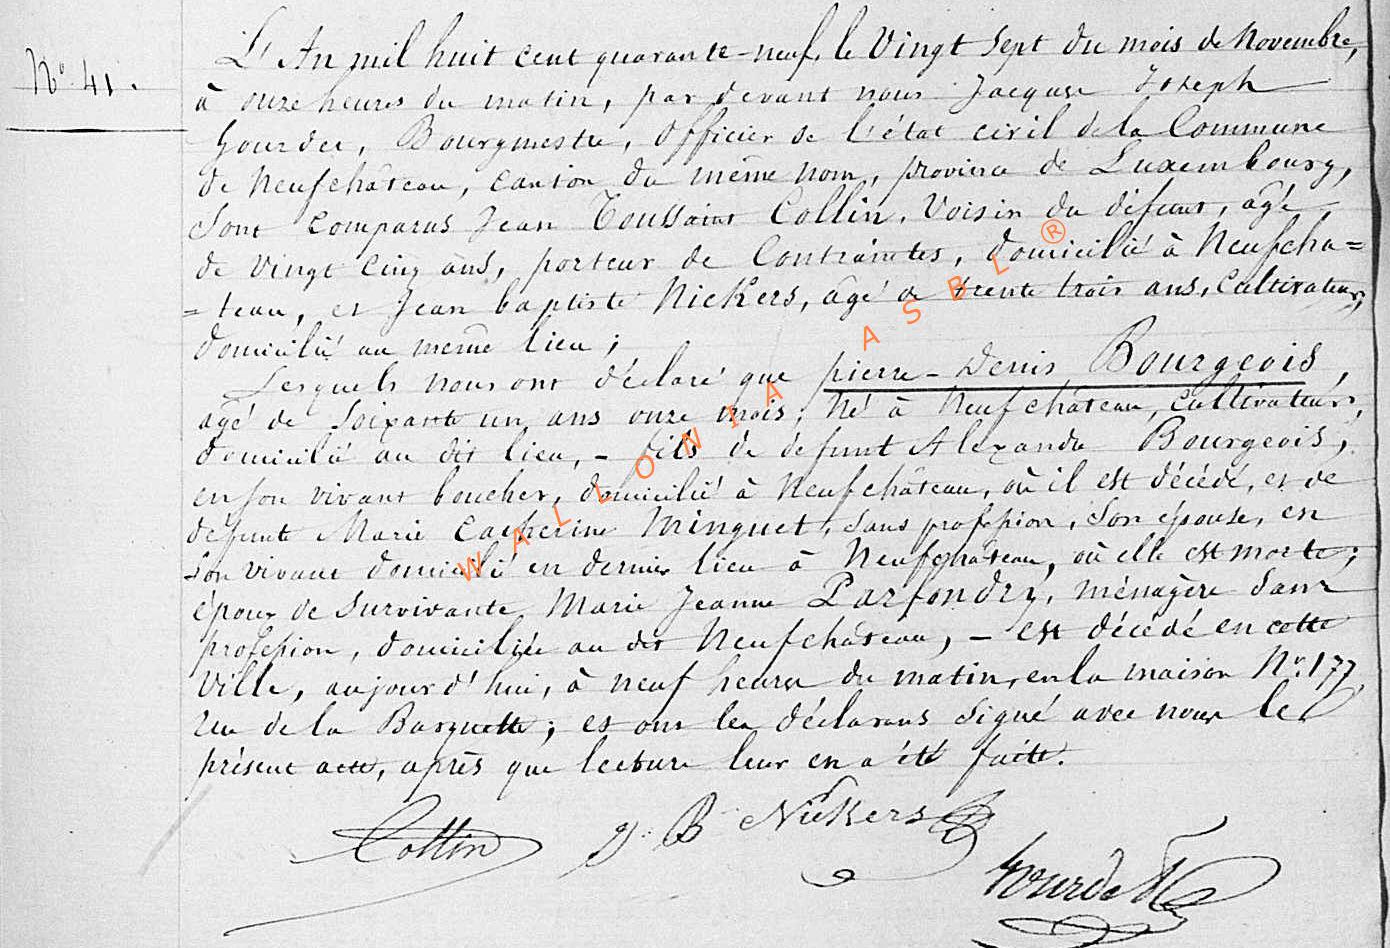 N° 41.
L'An mil huit cent quarante-neuf, le Vingt Sept du mois de Novembre,
à onze heures du matin, par devant nous Jacques Joseph
Gourdet, Bourgmestre, Officier de l'état civil de la Commune
de Neufchâteau, canton du même nom, province de Luxembourg,
Sont comparus Jean Toussaint Collin, Voisin du défunt, âgé
de vingt cinq ans, porteur de Contraintes, domicilié à Neufcha=
=teau, et Jean baptiste Nickers, âgé de trente trois ans, Cultivateur,
domicilié au même lieu ;
Lesquels nous ont déclaré que pierre-Denis Bourgeois,
agé de Soixante un ans onze mois, Né à Neufchâteau, Cultivateur,
domicilié au dit lieu, - fils de defunt Alexandre Bourgeois,
en son vivant boucher, domicilié à Neufchâteau, où il est décédé, et de
defunte Marie Catherine Minguet, Sans profession, Son épouse, en
Son vivant domicilié en dernier lieu à Neufchateau, où elle est morte ;
époux de Survivante Marie Jeanne Parfondry, ménagère Sans
profession, domiciliée au dit Neufchâteau, - est décédé en cette
Ville, aujourd'hui, à neuf heures du matin, en la maison N° 177,
rue de la Barquette ; et ont les déclarans signé avec nous le
présent acte, après que lecture leur en a été faite.
Collin J. B Nickers
Gourdet
WALLONIA ASBL ®